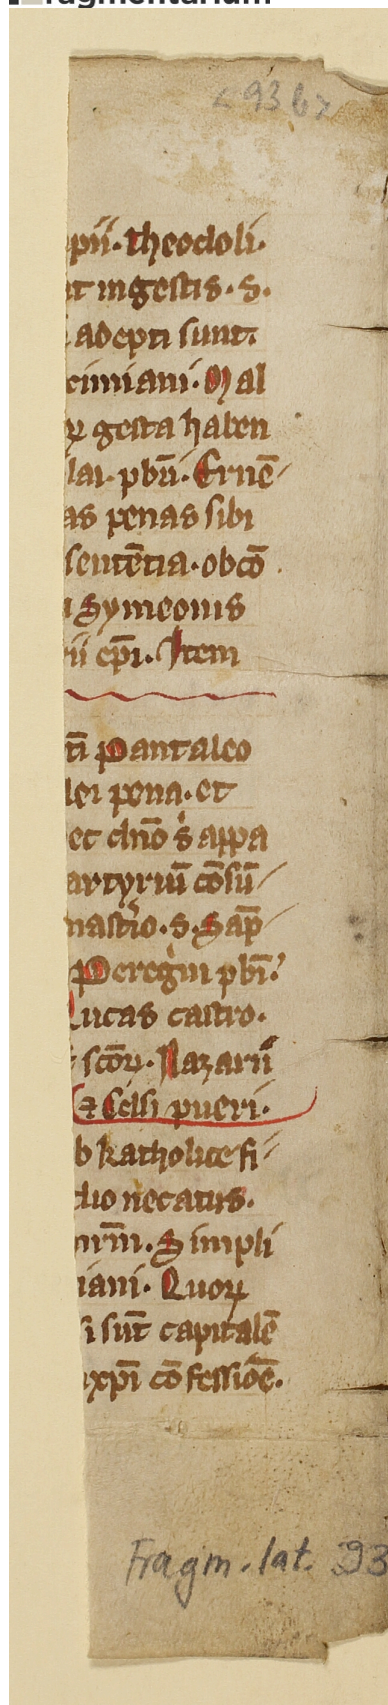 fragmentarium
<93b>
pii. theodoli.
nt ingestis. S.
adepti sunt.
cimiani. Mal
ꝝ gesta haben
lai. pbrī. Ernē
as penas sibi
sentētia. ob cō
Symeonis
rii epī. Item
ti Pantaleo
lei pena. et
et dn̄o s̓ appa
artyriū cōsū
nastio. S. Sap̄
Peregⁱni pbī.
Lucas castro.
scōꝝ. Nazarii
⁊ Celsi pueri.
b katholice fi
dio necatus.
mrm̄. Simpli
iani. Quoꝝ
i sūt capitalē
xp̄i cōfessiōē.
Fragm. lat. 93